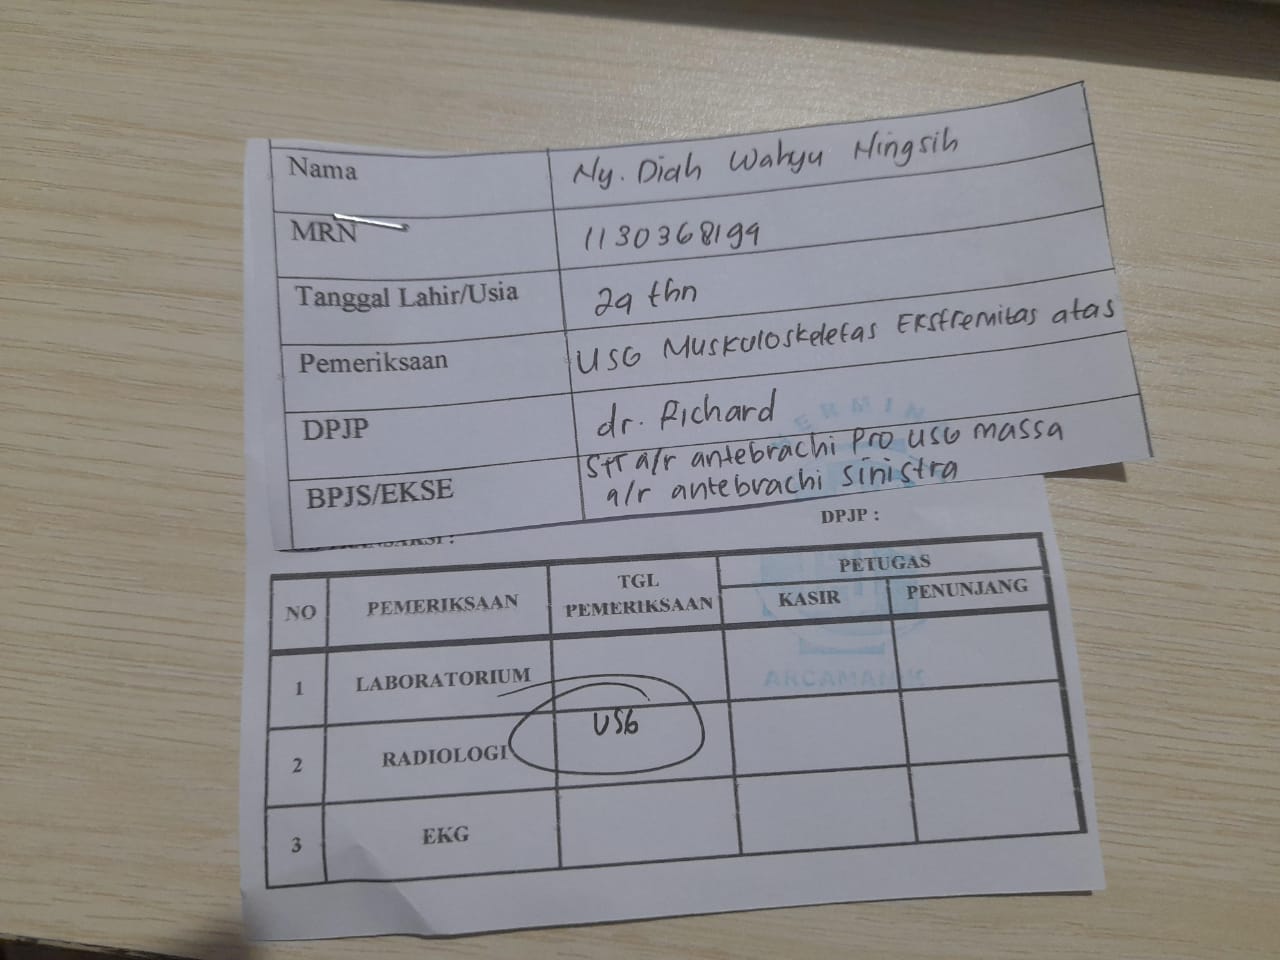 Nama Ny. Diah Wahyu Ningsih
MRN 1130368199
Tanggal Lahir/Usia 29 thn
Pemeriksaan USG Muskuloskeletas Ekstremitas atas
DPJP dr. Richard
BPJS/EKSE STT a/r antebrachi Pro USG massa
a/r antebrachi sinistra
DPJP :
NO PEMERIKSAAN TGL PEMERIKSAAN PETUGAS
KASIR PENUNJANG
1 LABORATORIUM
2 RADIOLOGI USG
3 EKG
ARCAMANIK